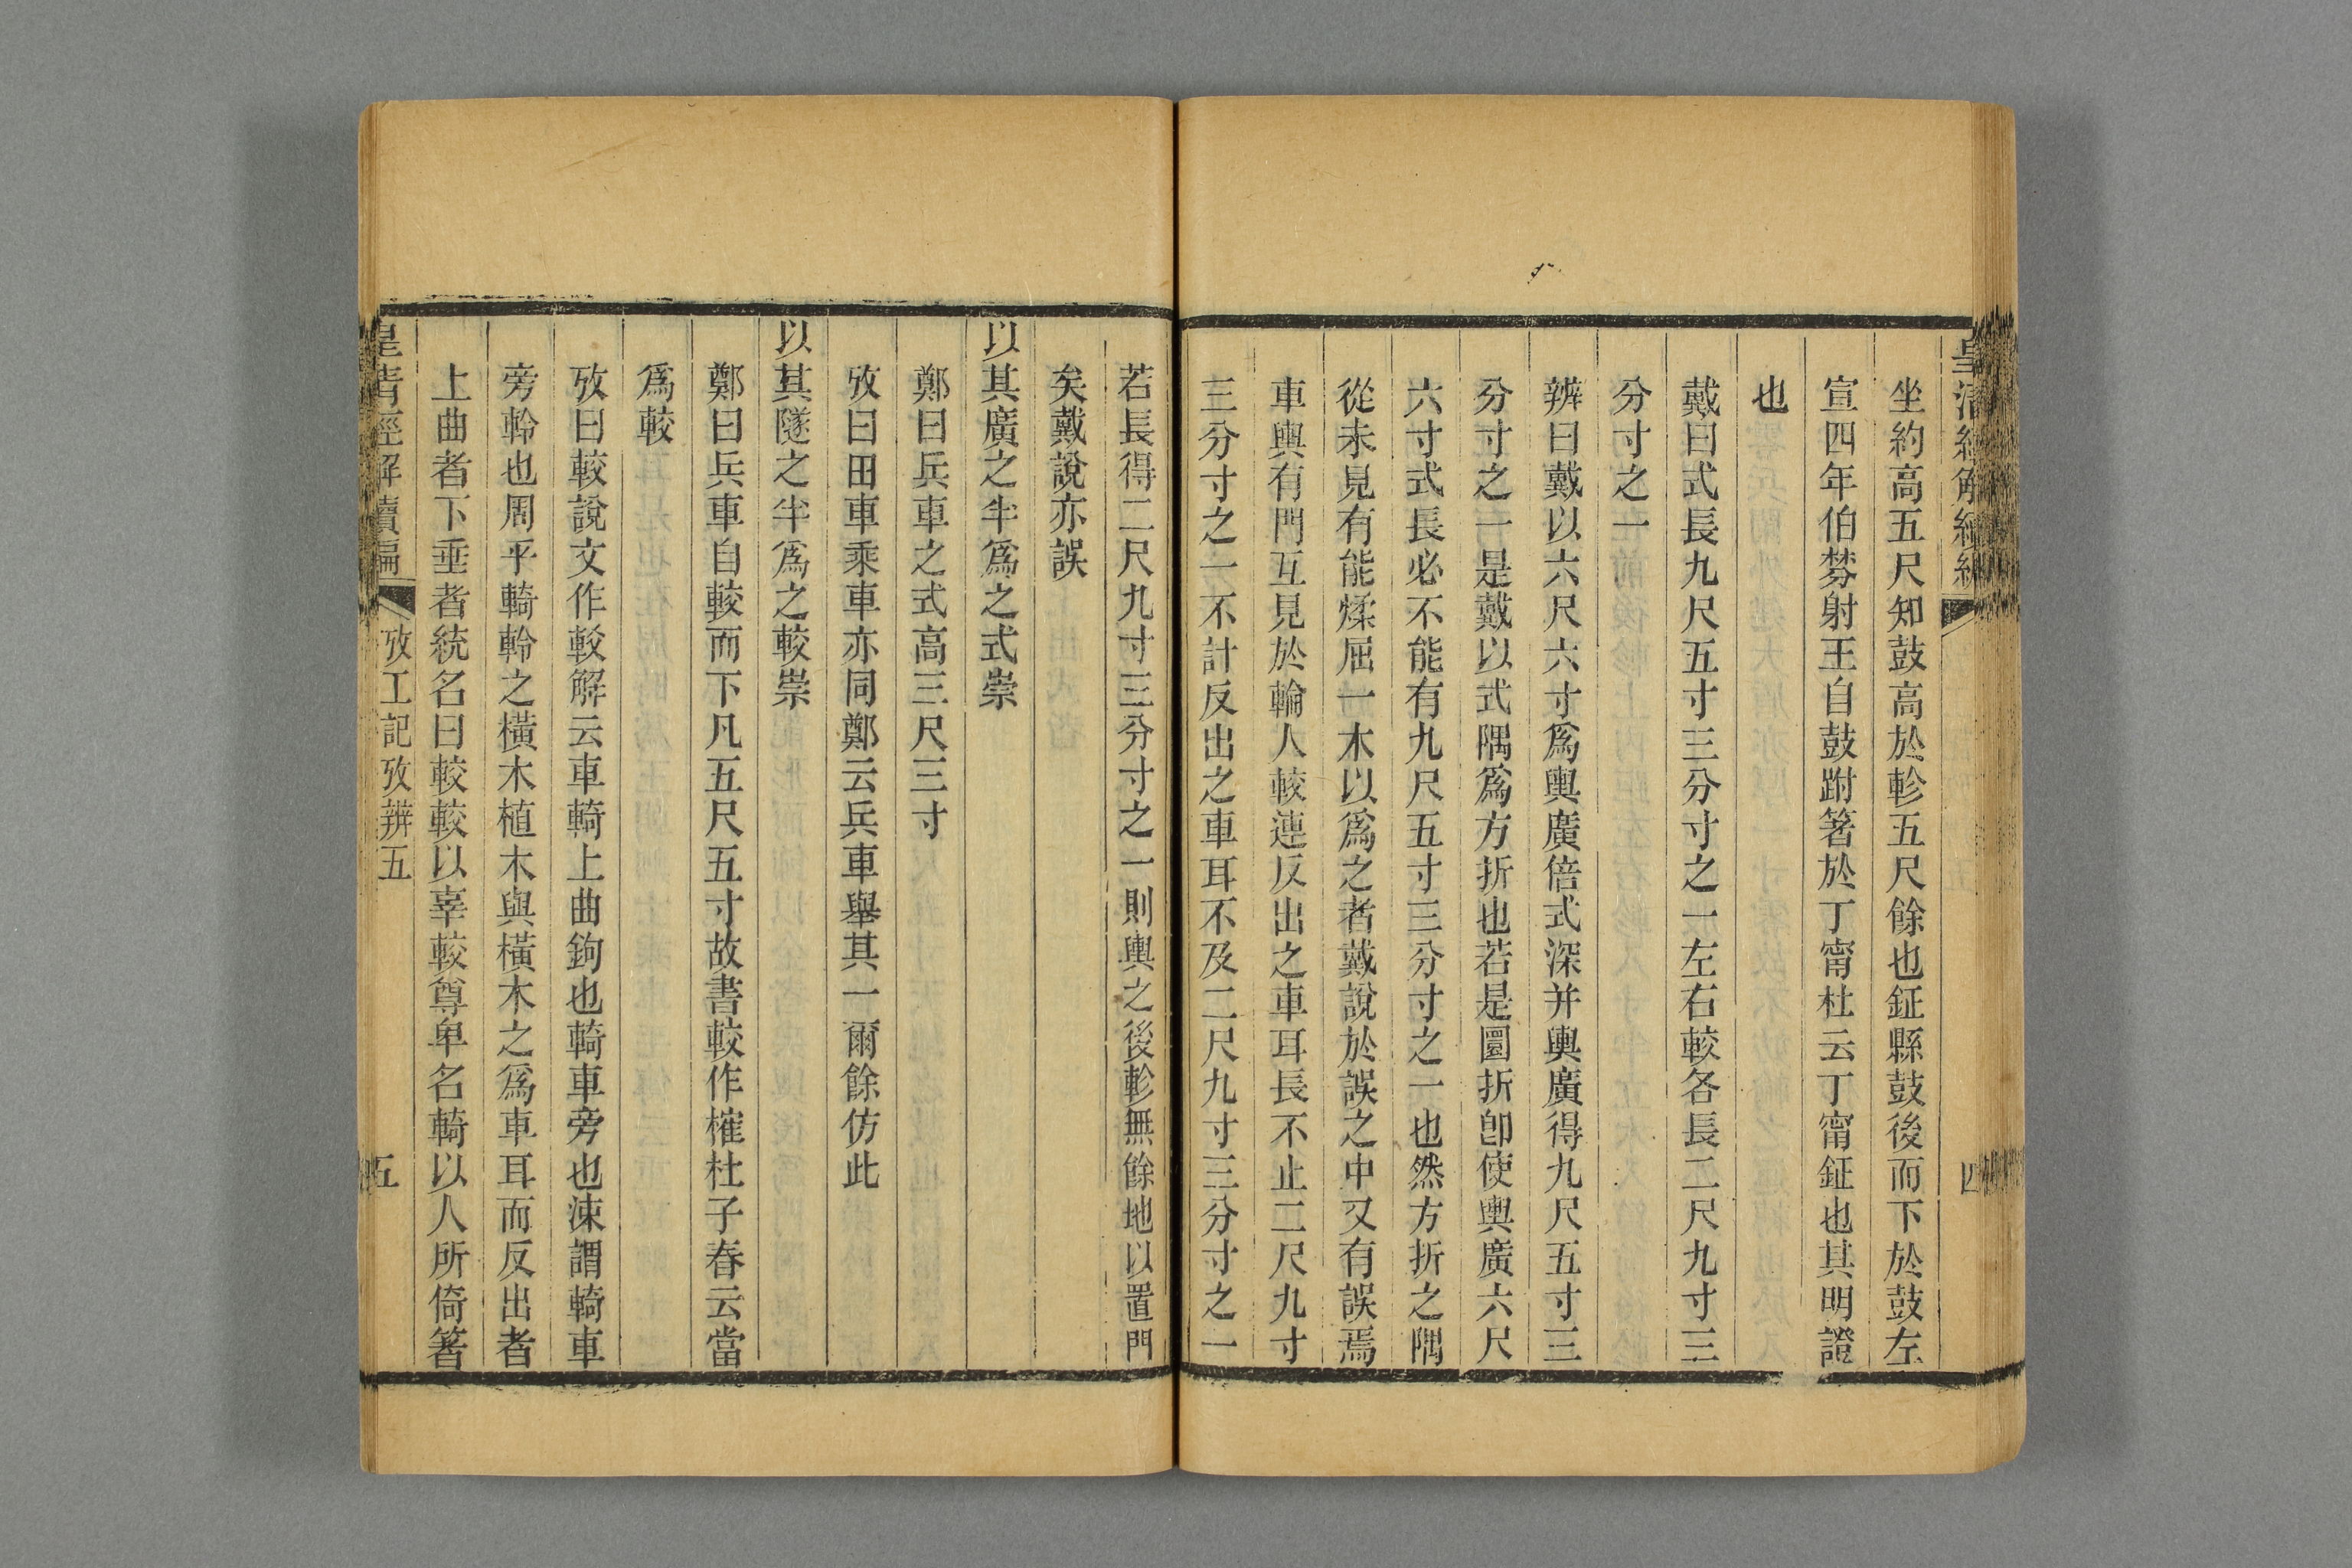 坐約高五尺知鼓高於軫五尺餘也鉦縣鼓後而下於鼓左
宣四年伯棼射王自鼓跗箸於丁甯杜云丁甯鉦也其明證
也
戴曰式長九尺五寸三分寸之一左右較各長二尺九寸三
分寸之一
辨曰戴以六尺六寸爲輿廣倍式深并輿廣得九尺五寸三
分寸之一是戴以式隅爲方折也若是圜折卽使輿廣六尺
六寸式長必不能有九尺五寸三分寸之一也然方折之隅
從未見有能煣屈一木以爲之者戴說於誤之中又有誤焉
車輿有門互見於輪人較連反出之車耳長不止二尺九寸
三分寸之一不計反出之車耳不及二尺九寸三分寸之一
若長得二尺九寸三分寸之一則輿之後軫無餘地以置門
矣戴說亦誤
以其廣之半爲之式崇
鄭曰兵車之式高三尺三寸
攷曰田車乘車亦同鄭云兵車舉其一爾餘仿此
以其隧之半爲之較崇
鄭曰兵車自較而下凡五尺五寸故書較作榷杜子春云當
爲較
攷曰較說文作較解云車輢上曲鉤也輢車旁也涷謂輢車
旁軨也周乎輢軨之橫木植木與橫木之爲車耳而反出者
上曲者下垂者統名曰較較以辜較尊卑名輢以人所倚箸
皇清經解續編 攷工記攷辨五 五